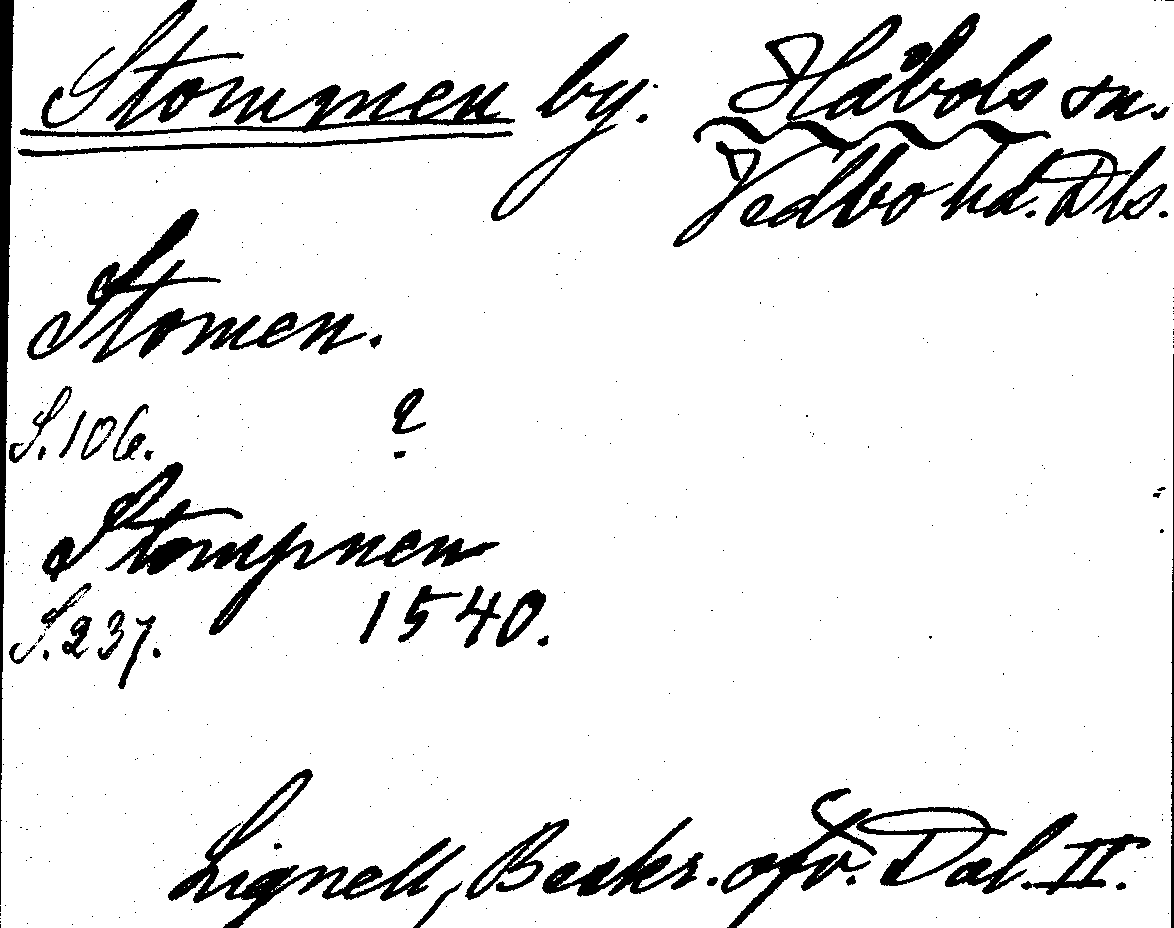 Stommen by. Håbols sn.
Vedbo hd. Dls.
Stomen.
S. 106. ?
Stompnen
S. 237. 1540.
Lignell, Beskr. öfv. Dal. II.